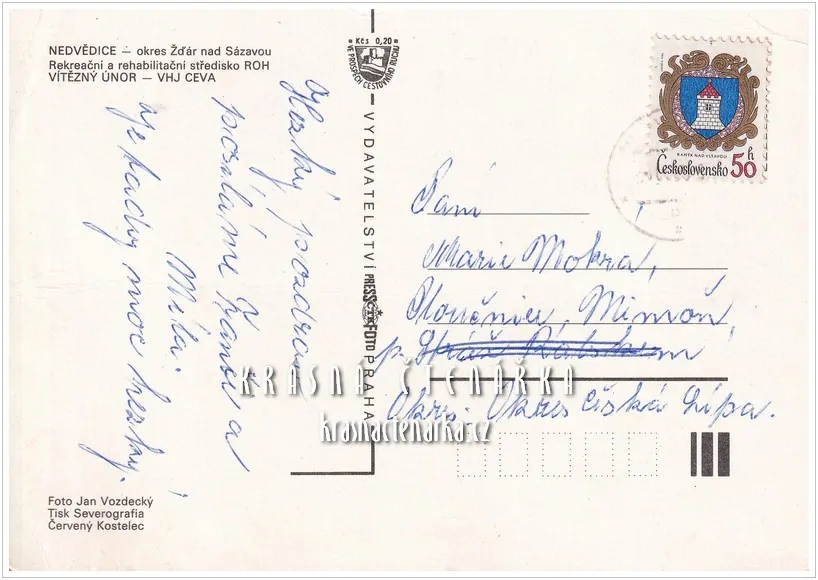 NEDVĚDICE — okres Žďár nad Sázavou
Rekreační a rehabilitační středisko ROH
VÍTĚZNÝ ÚNOR — VHJ CEVA
Hezký pozdrav
posíláme Franta a
Míla.
a je tady moc hezky.
Foto Jan Vozdecký
Tisk Severografia
Červený Kostelec
Kčs 0,20
VE PROSPĚCH CESTOVNÍHO RUCHU
VYDAVATELSTVÍ PRESSFOTO PRAHA
KAMÝK NAD VLTAVOU
Československo 50 h
Paní
Marie Mokrá,
Ploučnice, Mimoň
p.
Okres. Okres Česká Lípa.
KRÁSNÁ ČTENÁŘKA
krasnactenarka.cz